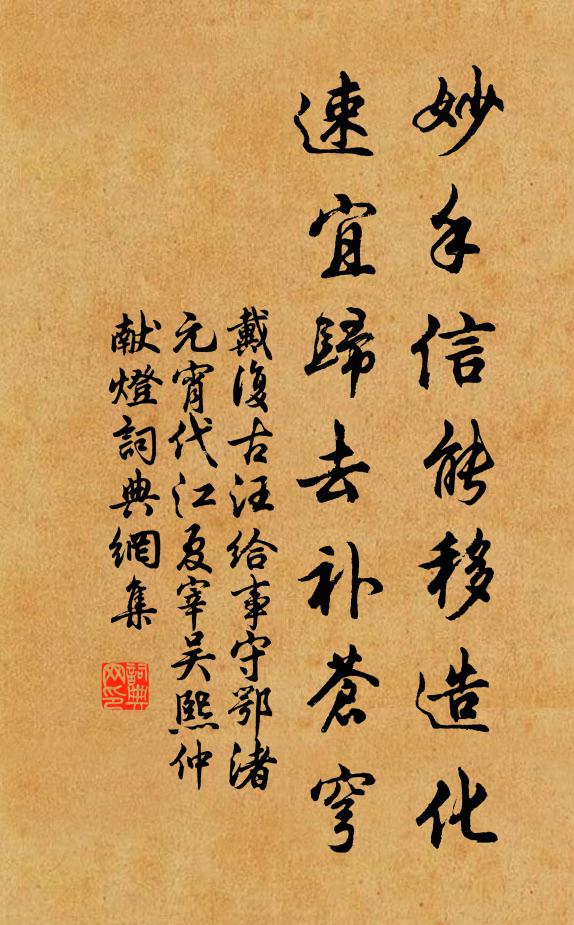 妙手信能移造化
速宜歸去补蒼穹
戴復古汪给事守鄂渚
元宵代江夏宰吴熙仲
献燈詞典網集
詞典网印